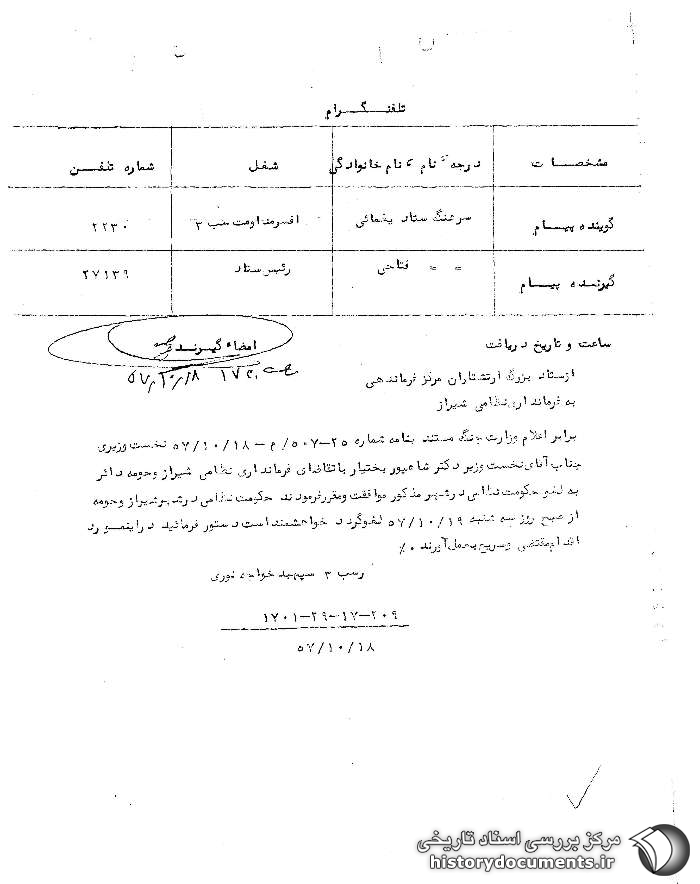 تلفنگرام
مشخصات درجه، نام، نام خانوادگی شغل شماره تلفن
گوینده پیام سرهنگ ستاد یغمائی افسرمداومت سب ۳ ۲۲۳۰
گیرنده پیام = = فتاحی رئیس ستاد ۲۷۱۳۹
ساعت و تاریخ دریافت امضاء گیرنده
۵۷/۱۰/۱۸
از ستاد بزرگ ارتشتاران مرکز فرماندهی
به فرمانداری نظامی شیراز
برابر اعلام وزارت جنگ مستند بنامه شماره ۲۵-۵۰۷/م-۵۷/۱۰/۱۸ نخست وزیری
جناب آقای نخست وزیر دکتر شاهپور بختیار با تقاضای فرمانداری نظامی شیراز وحومه دائر
به لغو حکومت نظامی در شهر مذکور موافقت ومقرر فرمودند حکومت نظامی در شهر شیراز وحومه
از صبح روز سه شنبه ۵۷/۱۰/۱۹ لغو گردد خواهشمند است دستور فرمائید در اینمورد
اقدام مقتضی وسریع بعمل آورند ۰٪
رسب ۳ سپهبد خواجه نوری
۱۷۰۱-۲۹-۱۷-۲۰۹
۵۷/۱۰/۱۸
مرکز بررسی اسناد تاریخی
historydocuments.ir